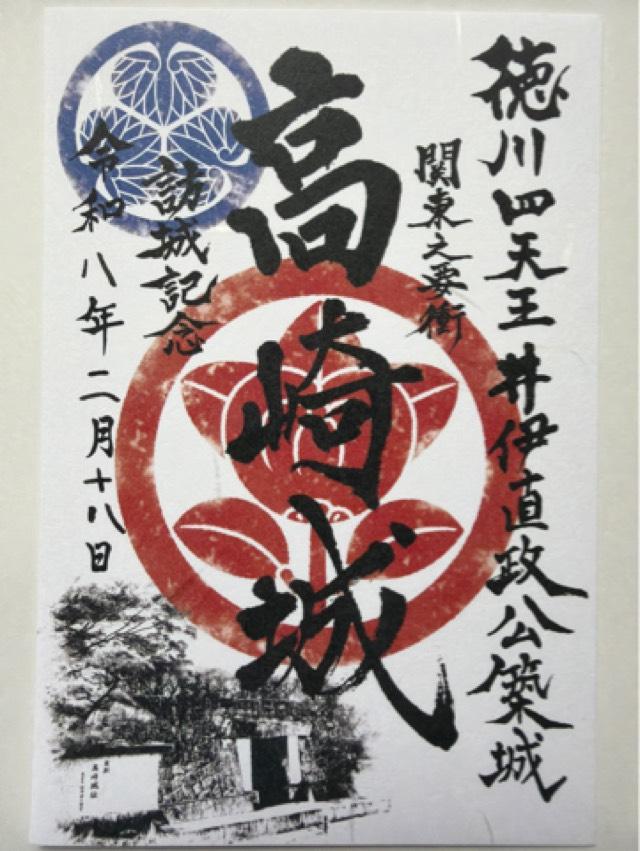 徳川四天王 井伊直政公築城
関東之要衝
高崎城
訪城記念
令和八年二月十八日